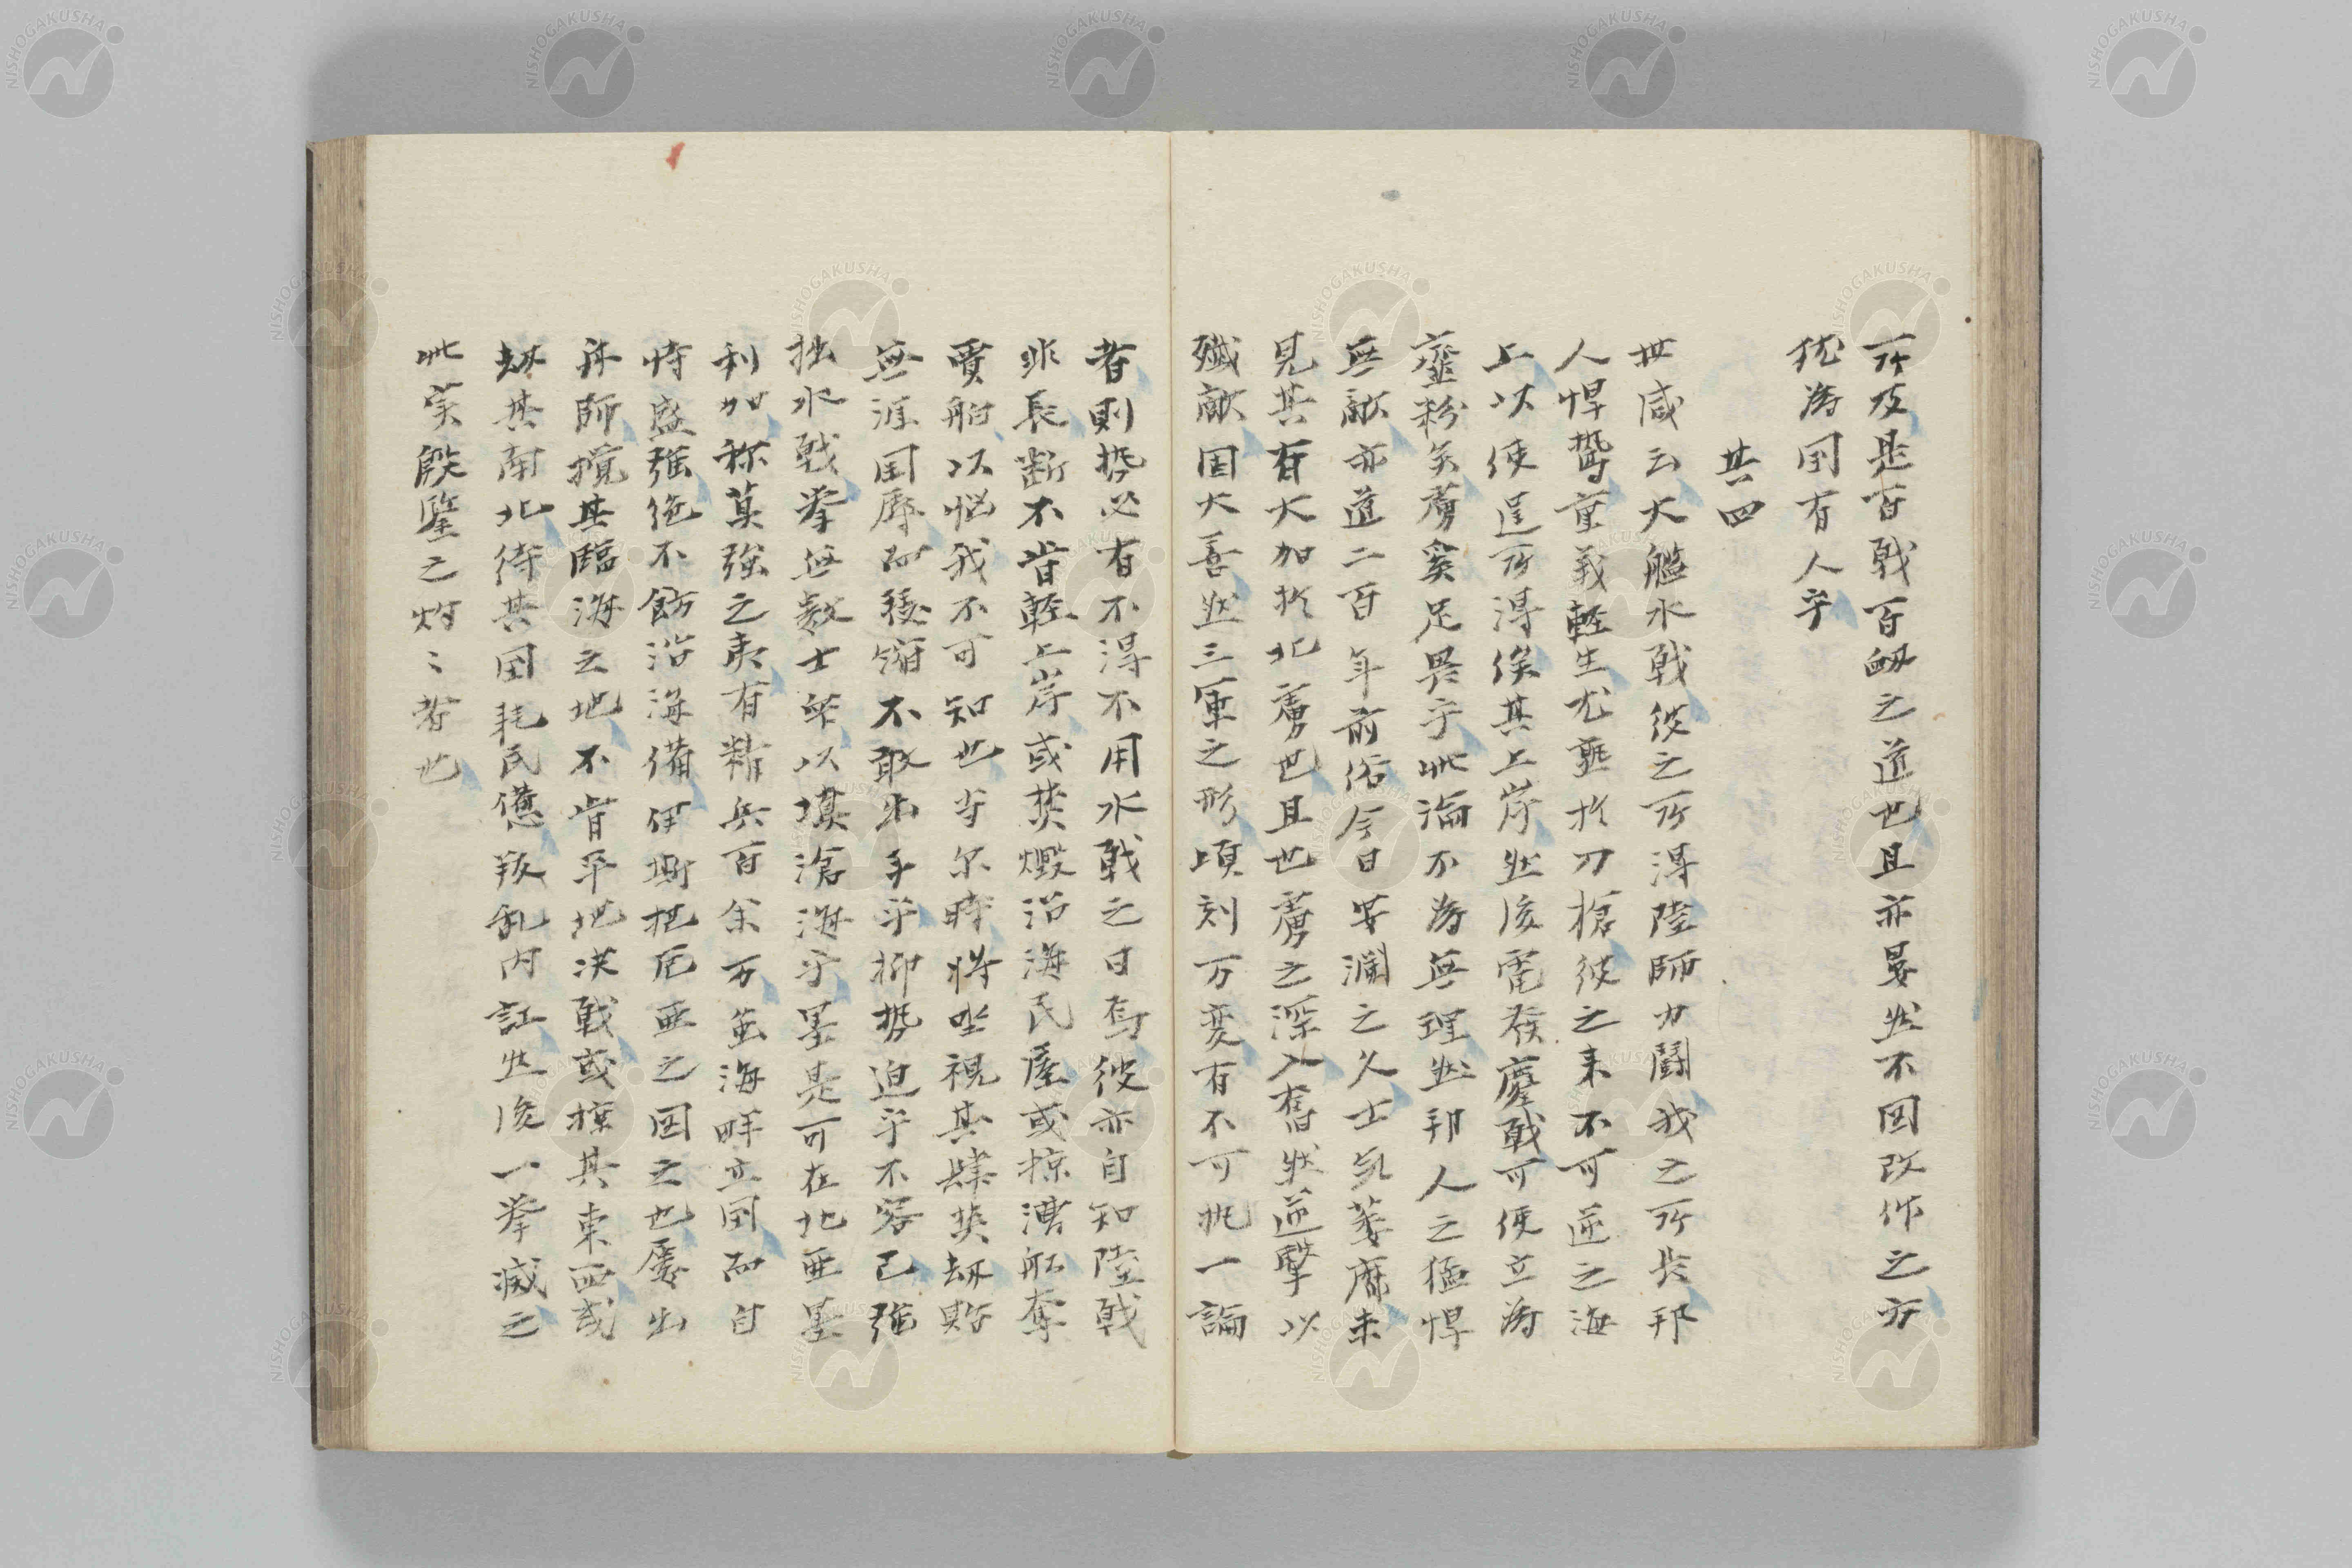 所及是百戰百衂之道也且亦晏然不図改作之方
猶為国有人乎
其四
世咸云大艦水戰彼之所得陸師力闘我之所長邦
人悍鷙重義軽生尤甚於刀槍彼之来不可逆之海
上以使逞所得俟其上岸然後電發鏖戰可使立為
齏粉矣虜奚足畏乎此論不為無理然邦人之猛悍
無敵亦道二百年前俗今日安瀾之久士気萎靡未
見其有大加於北虜也且也虜之深入奮然逆擊以
殲敵固大善然三軍之形頃刻万変有不可執一論
者則勢必有不得不用水戰之日焉彼亦自知陸戰
非長断不肯軽上岸或焚燬沿海民屋或掠漕船奪
賈舶以悩我不可知也当尓時将坐視其肆焚劫貽
無涯国辱而縮不敢出手乎抑勢迫乎不容已強
拙水戰挙無数士卒以填滄海乎墨是可在北亜墨
利加称莫強之夷有精兵百余万並海畔立国而自
恃盛強絶不飭沿海備伊斯把尼亜之図之也屡出
舟師擾其臨海之地不肯平地決戰或掠其東西或
劫其南北待其国耗民憊叛乱内訌然後一挙滅之
此実殷鑒之灼〻者也
NISHOGAKUSHA